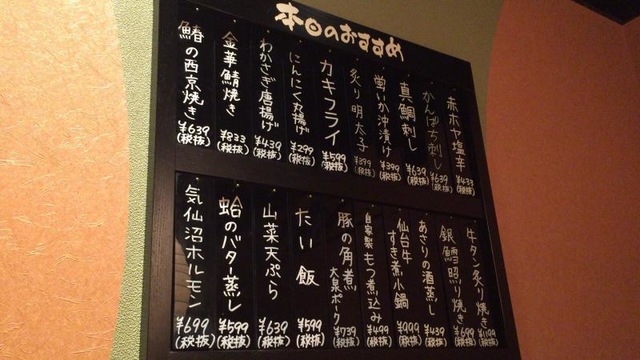 本日のおすすめ
赤ホヤ塩辛 ¥433 (税抜)
かんぱち刺し ¥639 (税抜)
真鯛刺し ¥639 (税抜)
蛍いか沖漬け ¥399 (税抜)
炙り明太子 ¥399 (税抜)
カキフライ ¥599 (税抜)
にんにく丸揚げ ¥299 (税抜)
わかさぎ唐揚げ ¥439 (税抜)
金華鯖焼き ¥833 (税抜)
鰆の西京焼き ¥639 (税抜)
牛タン炙り焼き ¥1199 (税抜)
銀鱈照り焼き ¥699 (税抜)
あさりの酒蒸し ¥439 (税抜)
仙台牛すき煮小鍋 ¥999 (税抜)
自家製もつ煮込み ¥499 (税抜)
豚の角煮 大泉ポーク ¥739 (税抜)
たい飯 ¥599 (税抜)
山菜天ぷら ¥639 (税抜)
蛤のバター蒸し ¥599 (税抜)
気仙沼ホルモン ¥699 (税抜)